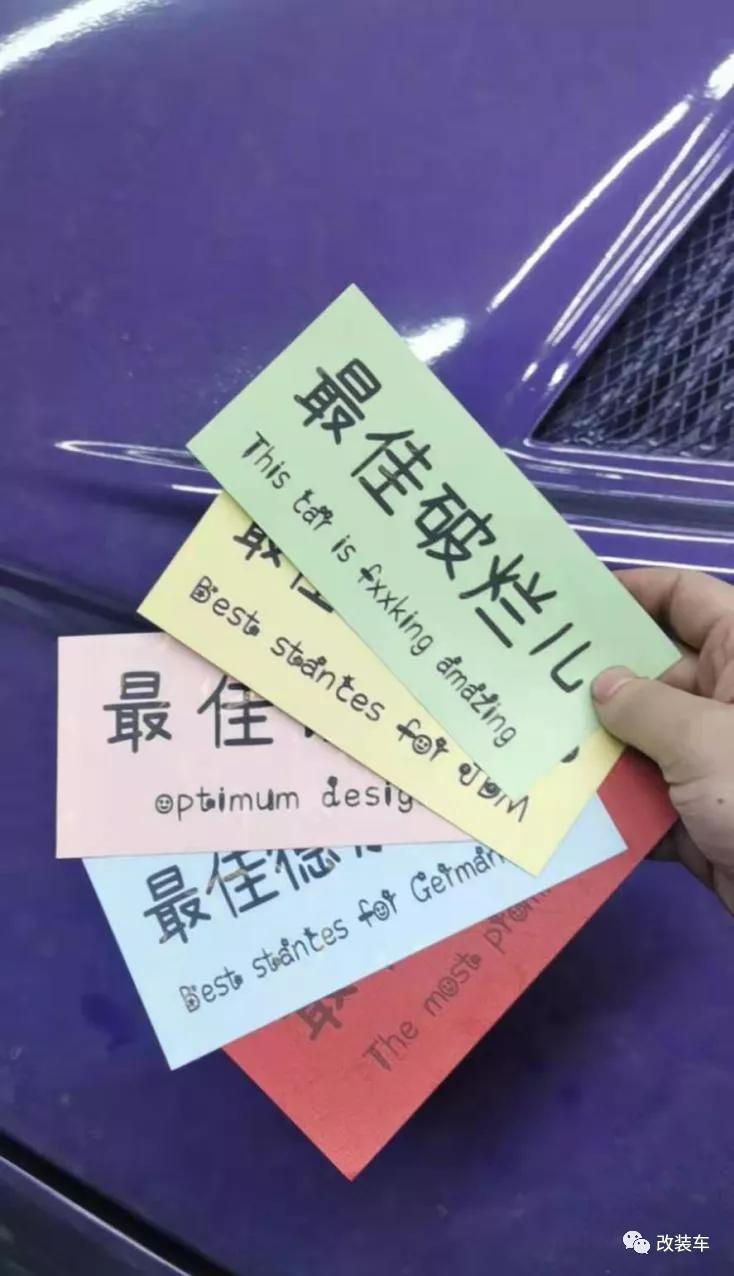 最佳破烂儿
This car is fxxking amazing
最佳
Best stantes for JDM
最佳
optimum desig
最佳德
Best stantes for German
最
The most prom
改装车